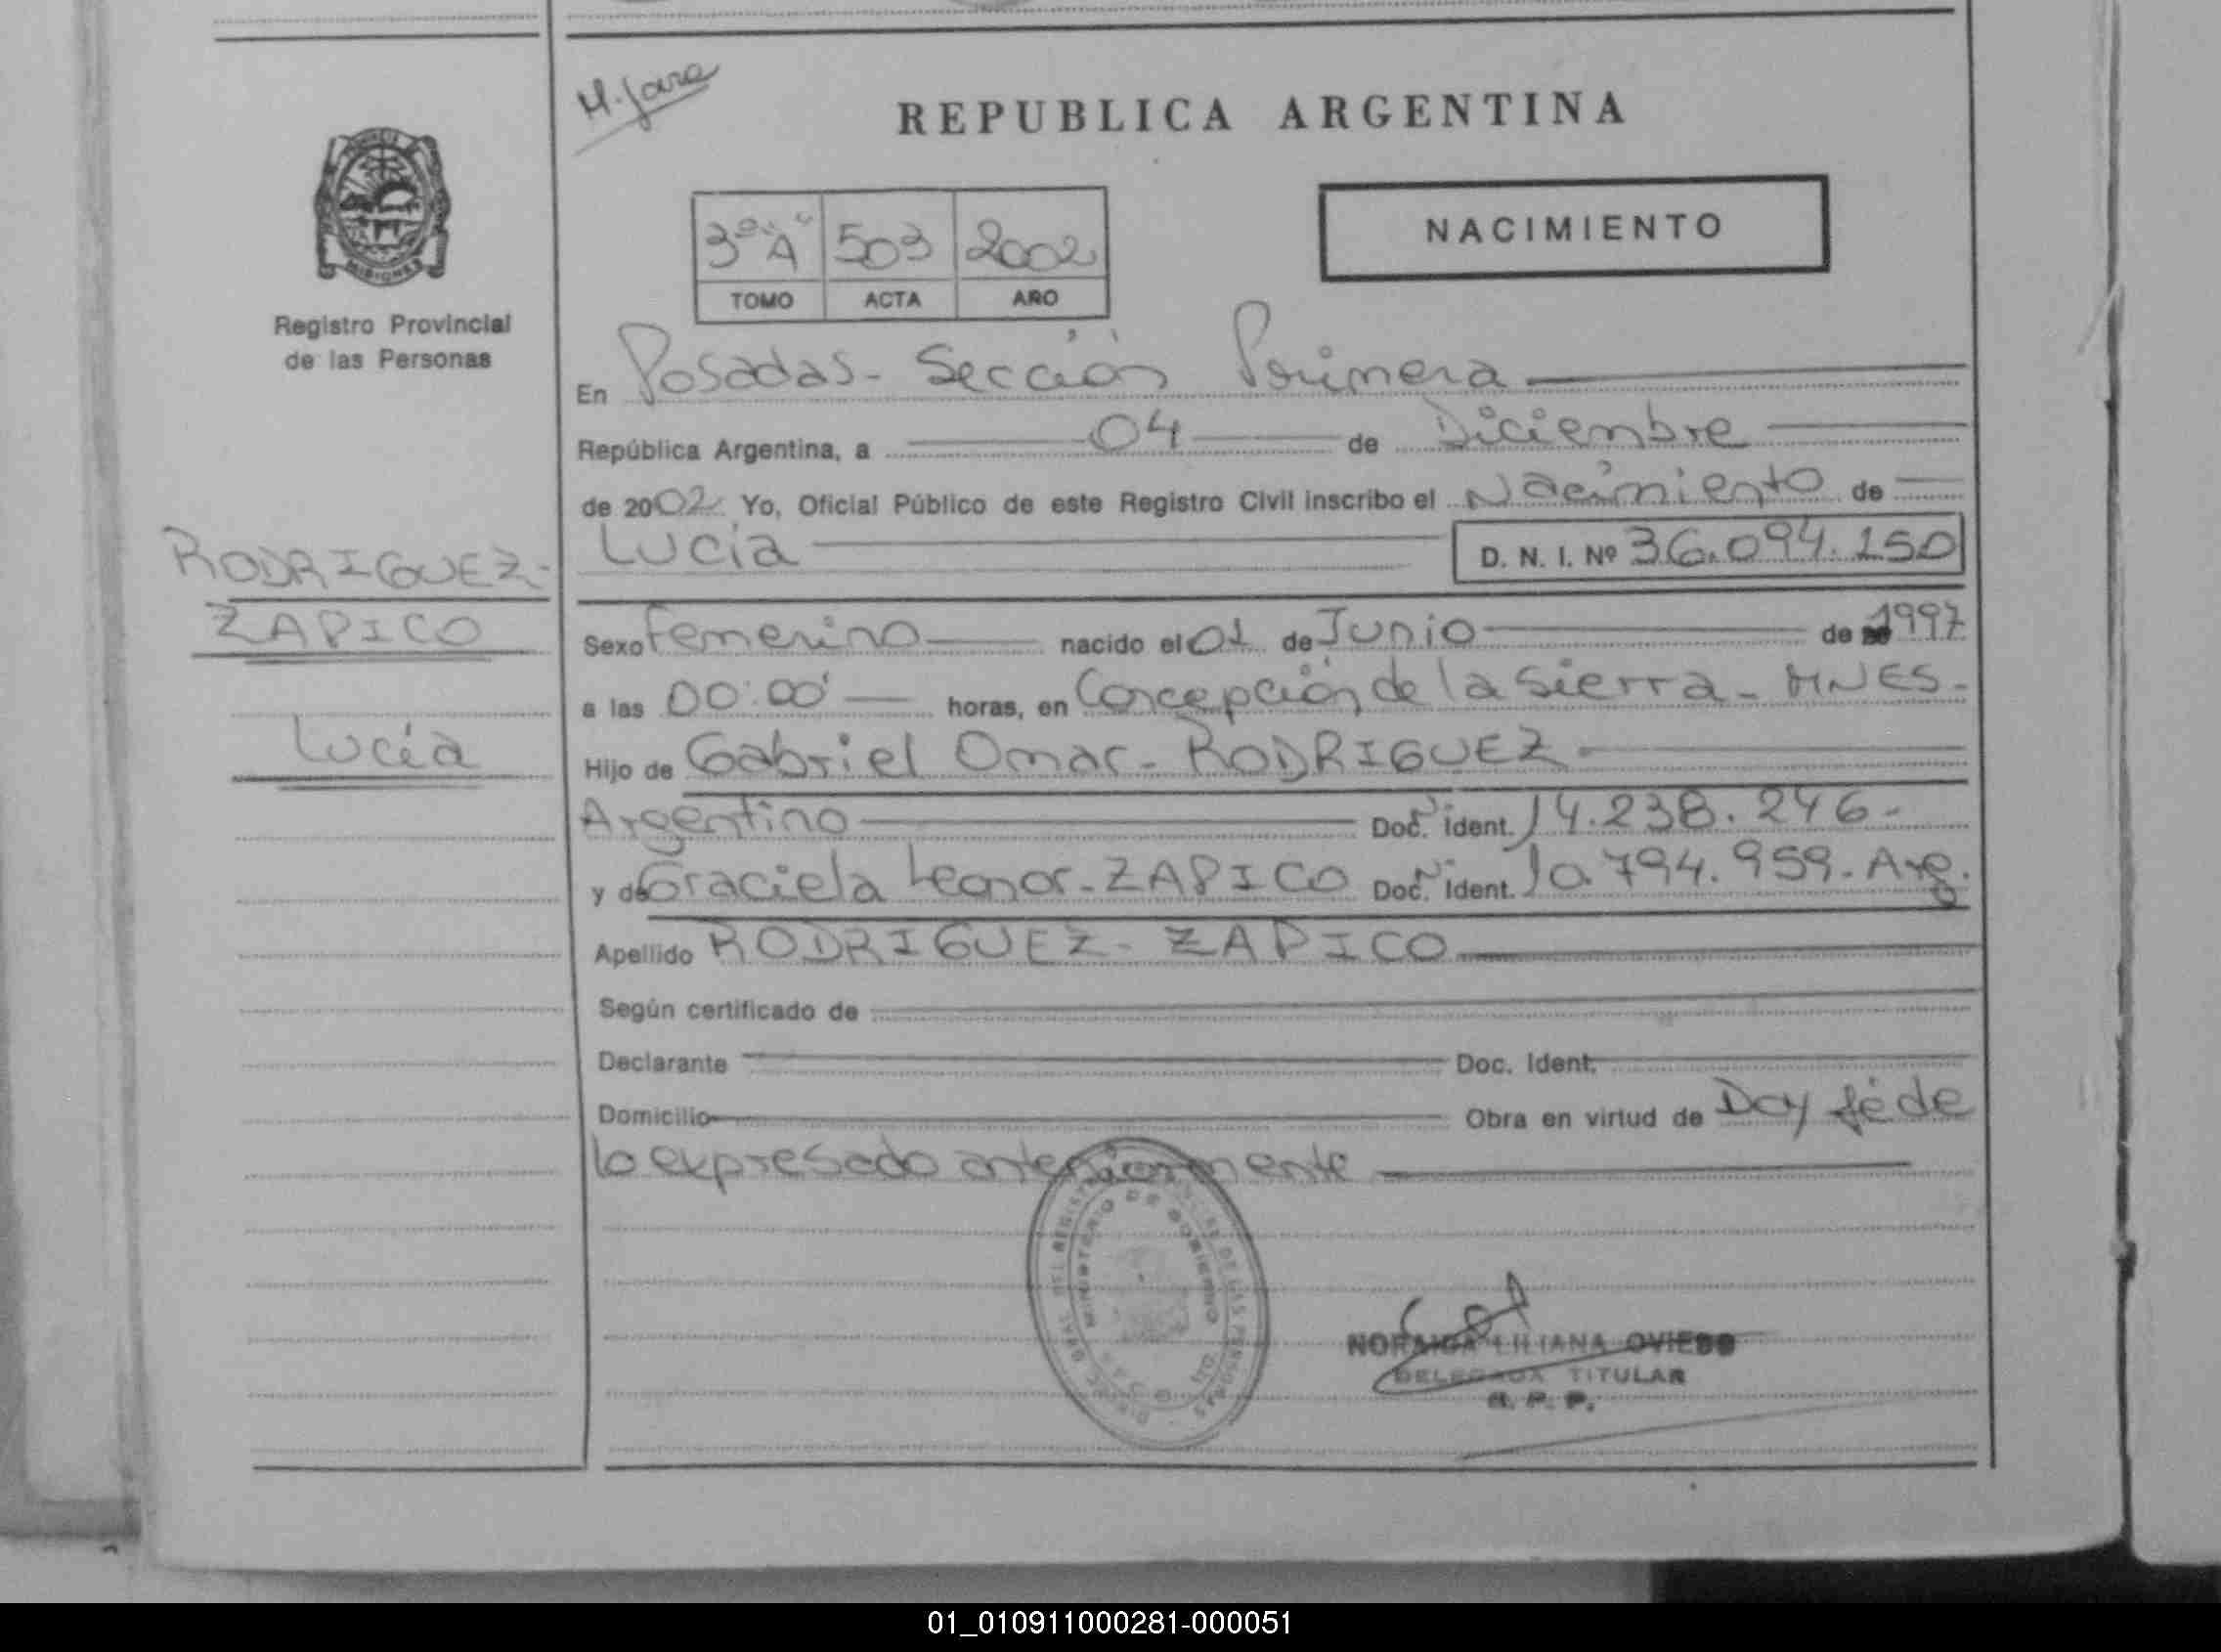 M. Jara
REPUBLICA ARGENTINA
3º "A" 503 2002
TOMO ACTA AÑO
NACIMIENTO
PROVINCIA
MISIONES
Registro Provincial
de las Personas
RODRIGUEZ-
ZAPICO
Lucía
En Posadas - Sección Primera
República Argentina, a 04 de Diciembre
de 2002 Yo, Oficial Público de este Registro Civil inscribo el Nacimiento de
Lucía D. N. I. Nº 36.094.150
Sexo Femenino nacido el 01 de Junio de 1997
a las 00:00' horas, en Concepción de la Sierra - MNES -
Hijo de Gabriel Omar - RODRIGUEZ
Argentino Doc. Ident. 14.238.246-
y de Graciela Leonor - ZAPICO Doc. Ident. 10.794.959 - Arg.
Apellido RODRIGUEZ - ZAPICO
Según certificado de
Declarante Doc. Ident.
Domicilio Obra en virtud de Doy fé de
lo expresado anteriormente
MINISTERIO DE GOBIERNO
NORAIDA LILIANA OVIEDO
DELEGADA TITULAR
R. P. P.
01_010911000281-000051